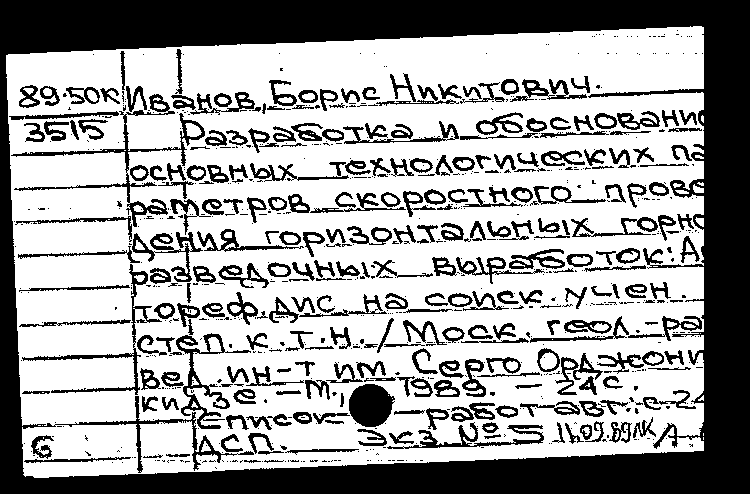 89-50К Иванов, Борис Никитович.
3515 Разработка и обоснование
основных технологических па
раметров скоростного прове
дения горизонтальных горно
разведочных выработок: Ав
тореф. дис. на соиск. учен.
степ. к.т.н. / Моск. геол.-раз
вед. ин-т им. Серго Орджони
кидзе. — М., 1989. — 24с.
Список работ авт.: с.24
6 ДСП. Экз. № 5 11.09.89